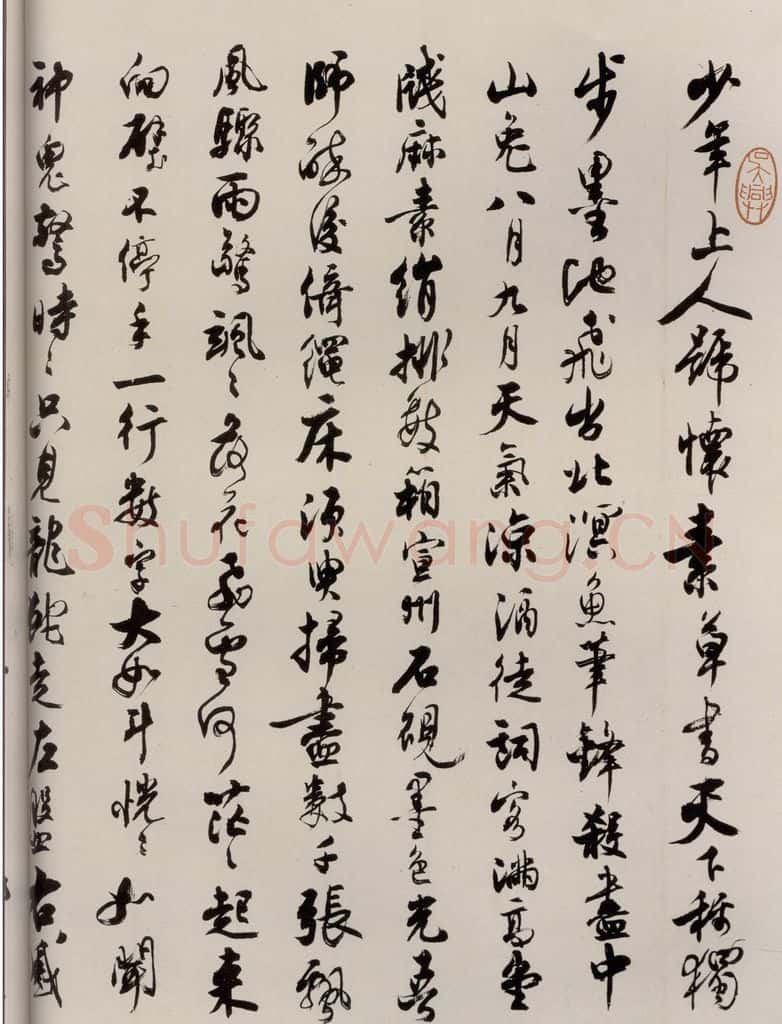 少年上人號懷素草書天下稱獨
步墨池飛出北溟魚筆鋒殺盡中
山兔八月九月天氣涼酒徒詞客滿高堂
牋麻素絹排數箱宣州石硯墨色光吾
師醉後倚繩床須臾掃盡數千張飄
風驟雨驚颯々落花飛雪何茫々起來
向壁不停手一行數字大如斗恍々如聞
神鬼驚時々只見龍蛇走左盤右蹙
吳興
Shufawang.CN